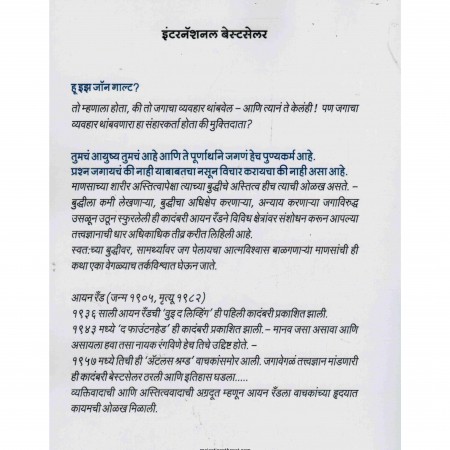 इंटरनॅशनल बेस्टसेलर
हू इझ जॉन गाल्ट?
तो म्हणाला होता, की तो जगाचा व्यवहार थांबवेल – आणि त्यानं ते केलंही! पण जगाचा
व्यवहार थांबवणारा हा संहारकर्ता होता की मुक्तिदाता?
तुमचं आयुष्य तुमचं आहे आणि ते पूर्णार्थानि जगणं हेच पुण्यकर्म आहे.
प्रश्न जगायचं की नाही याबाबतचा नसून विचार करायचा की नाही असा आहे.
माणसाच्या शारीर अस्तित्वापेक्षा त्याच्या बुद्धीचे अस्तित्व हीच त्याची ओळख असते. –
बुद्धीला कमी लेखणाऱ्या, बुद्धीचा अधिक्षेप करणाऱ्या, अन्याय करणाऱ्या जगाविरुद्ध
उसळून उठून स्फुरलेली ही कादंबरी आयन रँडने विविध क्षेत्रांवर संशोधन करून आपल्या
तत्त्वज्ञानाची धार अधिकाधिक तीव्र करीत लिहिली आहे.
स्वत:च्या बुद्धीवर, सामर्थ्यावर जग पेलायचा आत्मविश्वास बाळगणाऱ्या माणसांची ही
कथा एका वेगळ्याच तर्कविश्वात घेऊन जाते.
आयन रँड (जन्म १९०५, मृत्यू १९८२)
१९३६ साली आयन रँडची 'वुइ द लिव्हिंग' ही पहिली कादंबरी प्रकाशित झाली.
१९४३ मध्ये 'द फाउंटनहेड' ही कादंबरी प्रकाशित झाली.– मानव जसा असावा आणि
असायला हवा तसा नायक रंगविणे हेच तिचे उद्दिष्ट होते. –
१९५७ मध्ये तिची ही 'अ‍ॅटलस श्रग्ड' वाचकांसमोर आली. जगावेगळं तत्त्वज्ञान मांडणारी
ही कादंबरी बेस्टसेलर ठरली आणि इतिहास घडला.....
व्यक्तिवादाची आणि अस्तित्ववादाची अग्रदूत म्हणून आयन रँडला वाचकांच्या हृदयात
कायमची ओळख मिळाली.